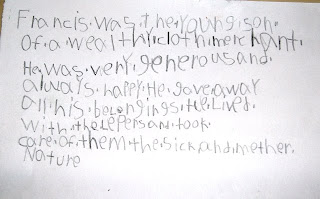 Francis.was.the.young.son.
Of.a.wealthy.cloth.merchant.
He.was.very.generous.and.
always.happy.He.gave.away
all.his.belongings.He.Lived.
with.the.Lepers.and.took.
care.of.them.the.sick.and.mother.
Nature